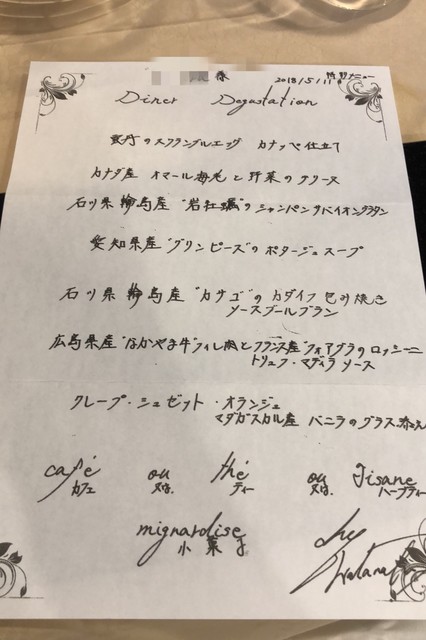 様 特別メニュー
2018/5/11
Diner Degustation
雲丹のスクランブルエッグ カナッペ仕立て
カナダ産 オマール海老と野菜のテリーヌ
石川県輪島産"岩牡蠣"のシャンパンサバイオングラタン
愛知県産"グリンピース"のポタージュスープ
石川県輪島産"カサゴ"のカダイフ包み焼き
ソースブールブラン
広島県産"なかやま牛"フィレ肉とフランス産"フォアグラのロッシーニ
トリュフ・マディラソース
クレープ・シュゼット・オランジュ
マダガスカル産 バニラのグラス添え
café ou thé ou Tisane
カフェ 又は、 ティー 又は、 ハーブティー
mignardise
小菓子